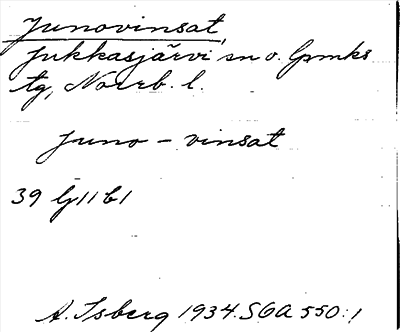 Junovinsat,
Jukkasjärvi sn o. Gpmks
tg, Norrb. l.
Juno - vinsat
39 Gj 11 b 1
A. Isberg 1934. SOA 550:1